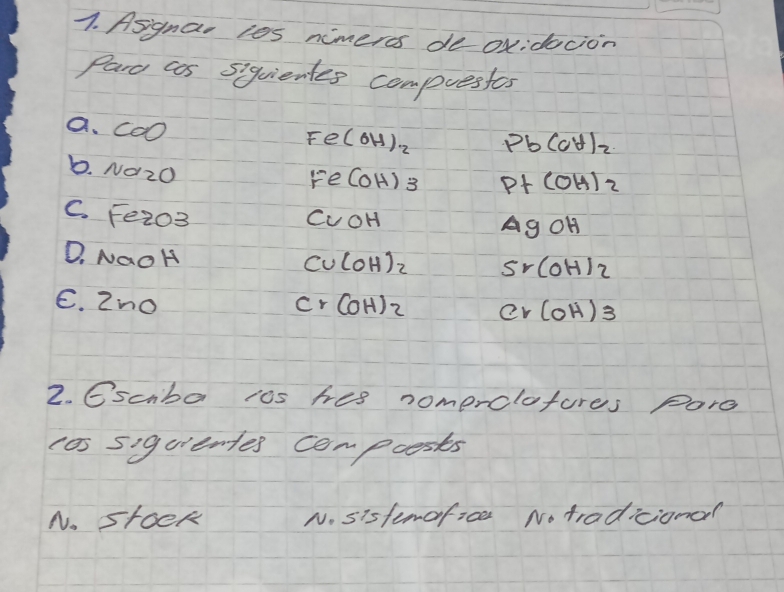 1. Asignar los números de oxidación
Para los siguientes compuestos
a. CaO Fe(OH)2 Pb(OH)2
b. Na2O Fe(OH)3 Pt(OH)2
C. Fe2O3 CuOH AgOH
D. NaOH Cu(OH)2 Sr(OH)2
E. ZnO Cr(OH)2 Cr(OH)3
2. Escriba los tres nomenclatures para
los siguientes compuestos
N. Stock N. sistematica N. tradicional